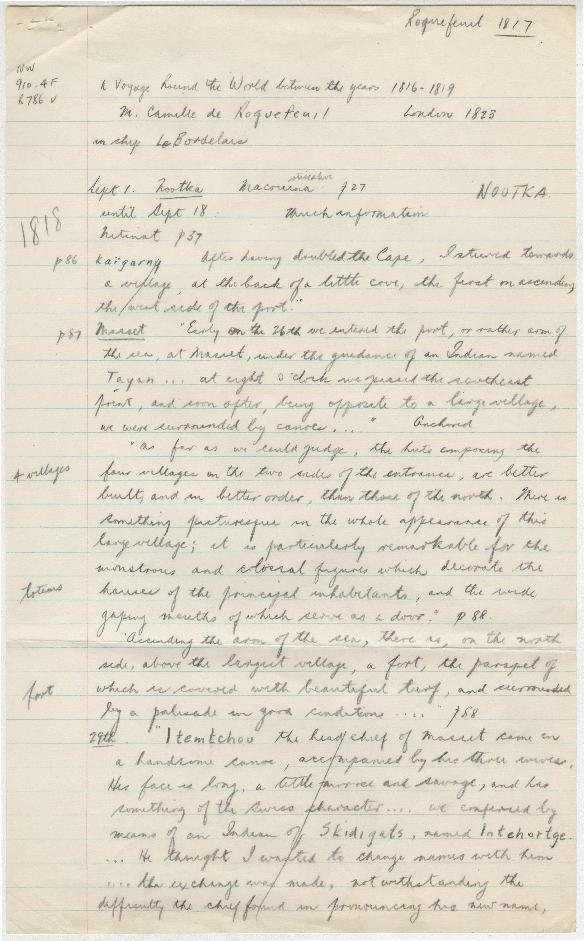 Roquefeuil 1817
NW
910.4F
R786v
A Voyage Round the World between the years 1816-1819
M. Camille de Roquefeuil London 1823
in ship Le Bordelais
Sept 1. Nootka Macouina p27 NOOTKA.
until Sept 18. Much information
1818
Nitinat p37
p86 Kaïgarny After having doubled the Cape, I steered towards
a village, at the back of a little cove, the first on ascending
the west side of the port."
p87 Masset "Early on the 26th we entered the port, or rather arm of
the sea, at Masset, under the guidance of an Indian named
Tayan ... at eight o'clock we passed the southeast
point, and soon after, being opposite to a large village,
we were surrounded by canoes...." Anchored
"As far as we could judge, the huts composing the
4 villages four villages on the two sides of the entrance, are better
built, and in better order, than those of the north. There is
something picturesque in the whole appearance of this
large village; it is particularly remarkable for the
monstrous and colossal figures which decorate the
totems houses of the principal inhabitants, and the wide
gaping mouths of which serve as a door." p88.
"Ascending the arm of the sea, there is, on the north
side, above the largest village, a fort, the parapet of
fort which is covered with beautiful turf, and surrounded
by a palisade in good condition ...." p88
29th. "Itemtchou the head chief of Masset came in
a handsome canoe, accompanied by his three wives.
His face is long, a little morose and savage, and has
something of the Swiss character.... we conversed by
means of an Indian of Skidigats, named Intchortge.
... He thought I wanted to change names with him
.... the exchange was made, notwithstanding the
difficulty the chief found in pronouncing his new name,